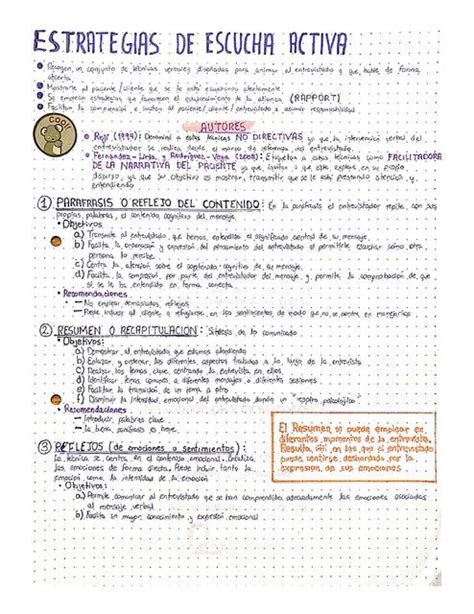 ESTRATEGIAS DE ESCUCHA ACTIVA
Recogen un conjunto de técnicas verbales diseñadas para animar al entrevistado a que hable de forma
abierta.
Mostrarle al paciente/cliente que se le está escuchando atentamente
Se emplean estrategias que favorecen el establecimiento de la alianza (RAPPORT)
Facilitan la comprensión e invitan al paciente/cliente/entrevistado a asumir responsabilidad
AUTORES
Rojí (1994): Denominó a estas técnicas NO DIRECTIVAS ya que la intervención verbal del
entrevistador se realiza desde el marco de referencia del entrevistado.
Fernández-Liria y Rodríguez-Vega (2008): Etiquetan a estas técnicas como FACILITADORA
DE LA NARRATIVA DEL PACIENTE ya que invitan a que éste explore en su propio
discurso, ya que su objetivo es mostrar, transmitir que se le está prestando atención y
entendiendo
① PARAFRASIS O REFLEJO DEL CONTENIDO: En la paráfrasis el entrevistador repite con sus
propias palabras, el contenido cognitivo del mensaje.
• Objetivos
a) Transmite al entrevistado que hemos entendido el significado central de su mensaje.
b) Facilita la ordenación y expresión del pensamiento del entrevistado al permitirle escuchar cómo otra
persona lo recibe
c) Centra la atención sobre el contenido cognitivo de su mensaje.
d) Facilita la comprensión por parte del entrevistador del mensaje y permite la comprobación de que
sí se le ha entendido en forma correcta
• Recomendaciones
— No emplear demasiados reflejos
— Puede inducir al cliente a refugiarse en los sentimientos de modo que no se centre en
② RESUMEN O RECAPITULACION: Síntesis de lo comunicado
• Objetivos:
a) Demostrar al entrevistado que estamos atendiendo
b) Enlazar y ordenar los diferentes aspectos tratados a lo largo de la entrevista
c) Realzar los temas clave centrando la entrevista en ellos
d) Identificar temas comunes a diferentes mensajes o diferentes sesiones
e) Facilitar la transición de un tema a otro
f) Disminuir la intensidad emocional del entrevistado dando un "respiro psicológico"
• Recomendaciones
— Introducir palabras clave
— Lo breve
El Resumen se puede emplear en
diferentes momentos de la entrevista.
Resulta útil en los que el entrevistado
puede sentirse desbordado por la
expresión de sus emociones
③ REFLEJOS (de emociones o sentimientos):
La técnica se centra en el contenido emocional. Enfatiza
las emociones de forma directa. Puede incluir tanto la
emoción como la intensidad de la emoción
• Objetivos:
a) Permite comunicar al entrevistado que se han comprendido adecuadamente las emociones asociadas
al mensaje verbal
b) Facilita un mayor conocimiento y expresión emocional